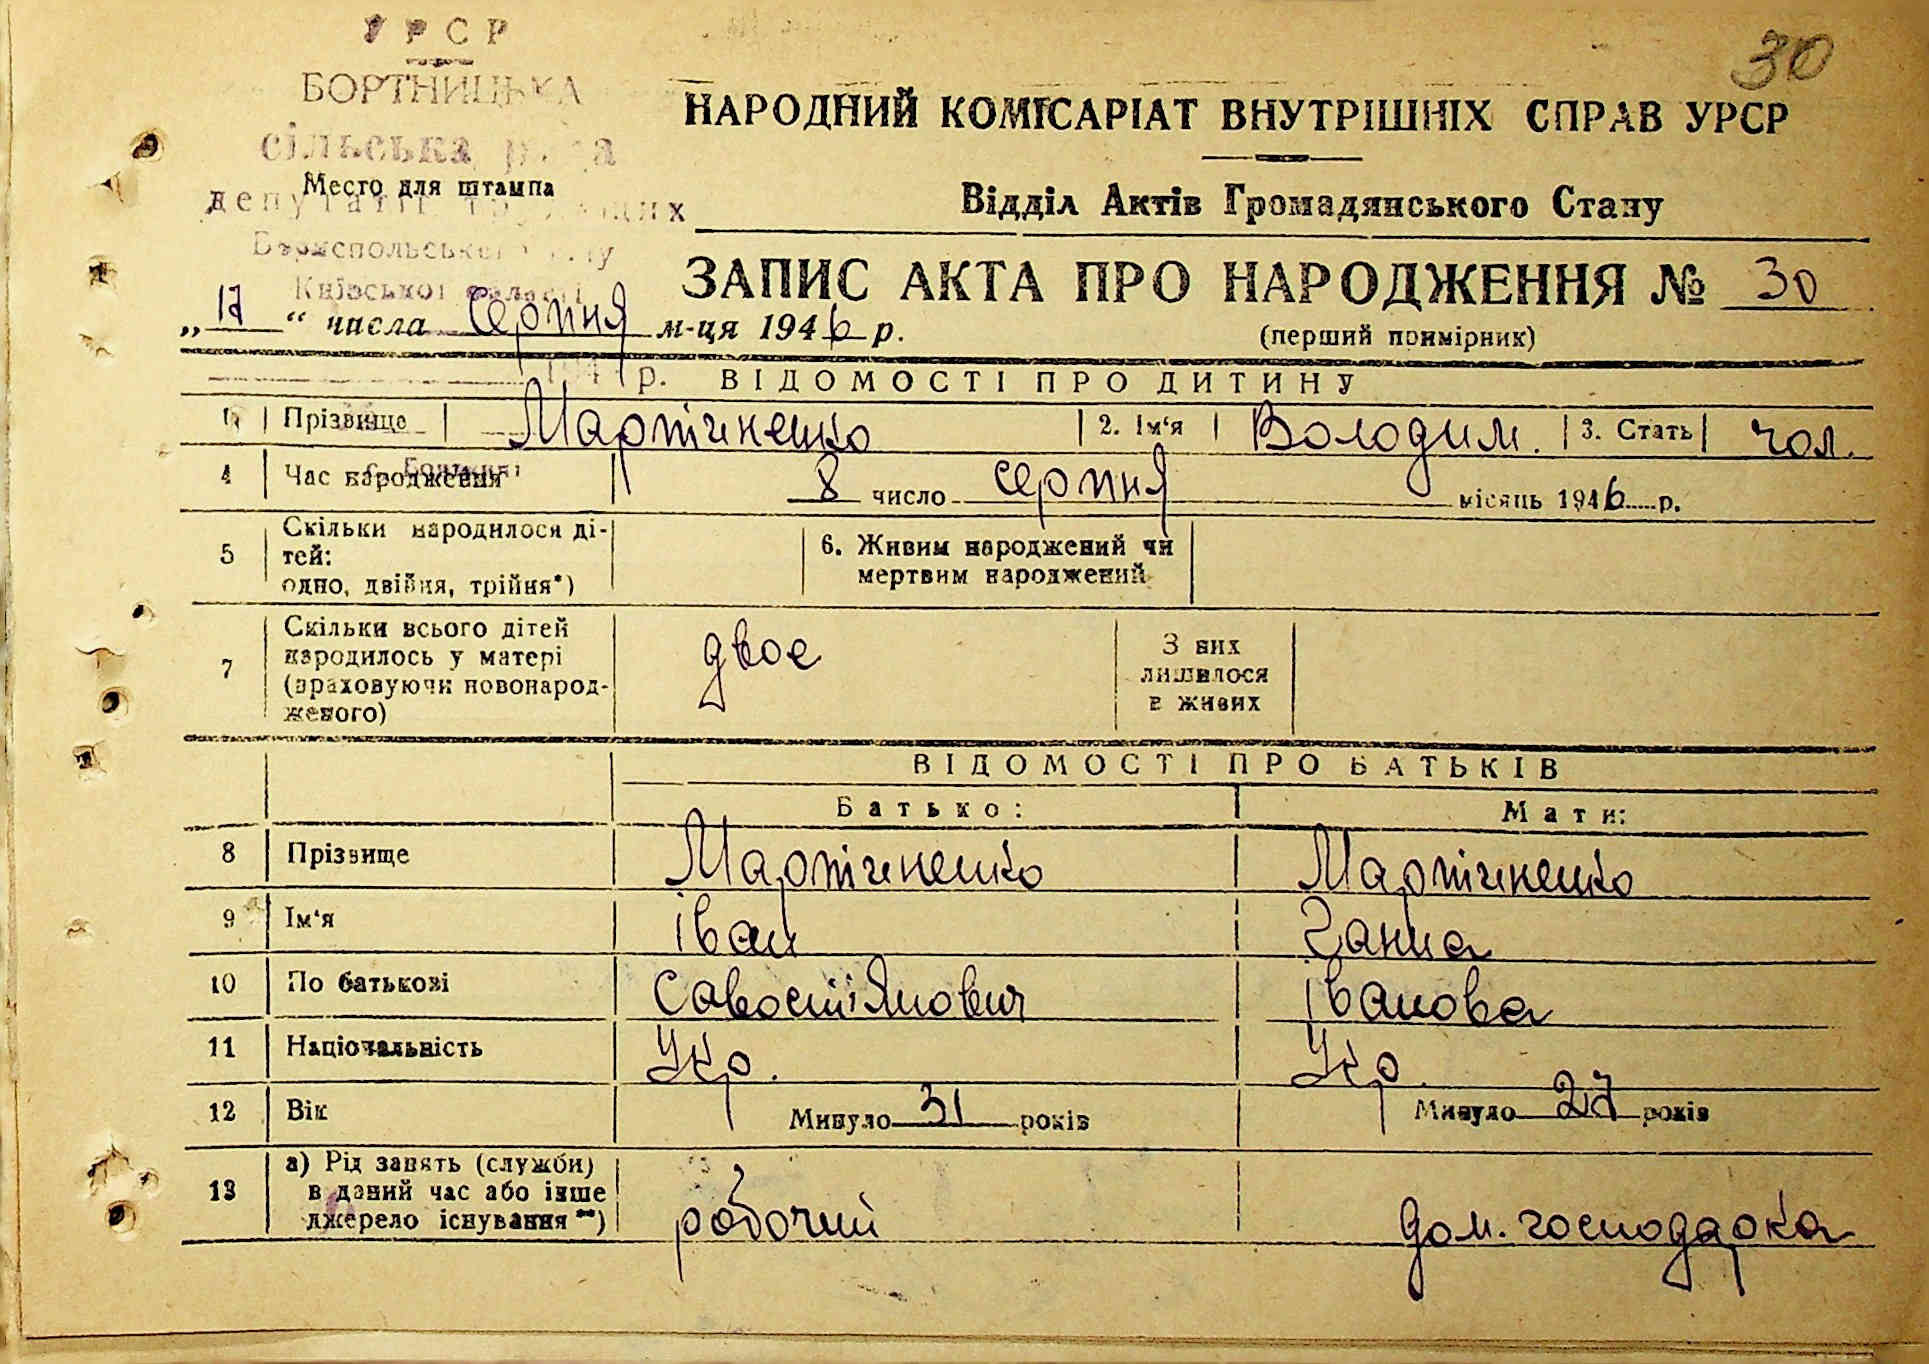 30
УРСР
БОРТНИЦЬКА
сільська рада
Место для штампа
депутатів трудящих
Бориспольського р-ну
Київської області
НАРОДНИЙ КОМІСАРІАТ ВНУТРІШНІХ СПРАВ УРСР
Відділ Актів Громадянського Стану
ЗАПИС АКТА ПРО НАРОДЖЕННЯ № 30
(перший примірник)
„17“ числа серпня м-ця 1946 р.
194 р.
ВІДОМОСТІ ПРО ДИТИНУ
1. Прізвище Мартіченко 2. Ім‘я Володим. 3. Стать чол.
4 Час народження 8 число серпня місяць 1946 р.
5 Скільки народилося ді-
тей:
одно, двійня, трійня*)
6. Живим народжений чи
мертвим народжений
7 Скільки всього дітей
народилось у матері
(враховуючи новонарод-
женого)
двое
З них
лишилося
в живих
ВІДОМОСТІ ПРО БАТЬКІВ
Батько: Мати:
8 Прізвище Мартіченко Мартіченко
9 Ім‘я Іван Ганна
10 По батькові Савостіянович Іванова
11 Національність Укр. Укр.
12 Вік Минуло 31 років Минуло 27 років
13 а) Рід занять (служби)
в даний час або інше
джерело існування **)
робочий дом. господарка